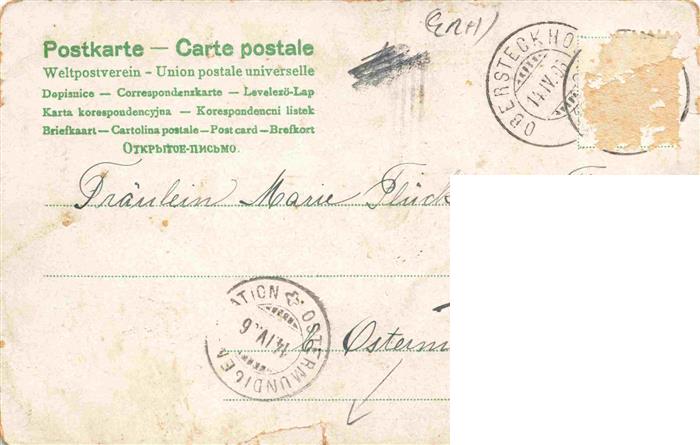 (GRH)
Postkarte — Carte postale
Weltpostverein - Union postale universelle
Dopisnice — Correspondenzkarte — Levelező-Lap
Karta korespondencyjna — Korespondencni listek
Briefkaart — Cartolina postale — Post card — Brefkort
Открытое-письмо.
OBERSTECKHO
14.IV.06
Fräulein Marie Flück
OSTERMUNDIGEN STATION
14.IV.6
Osterm